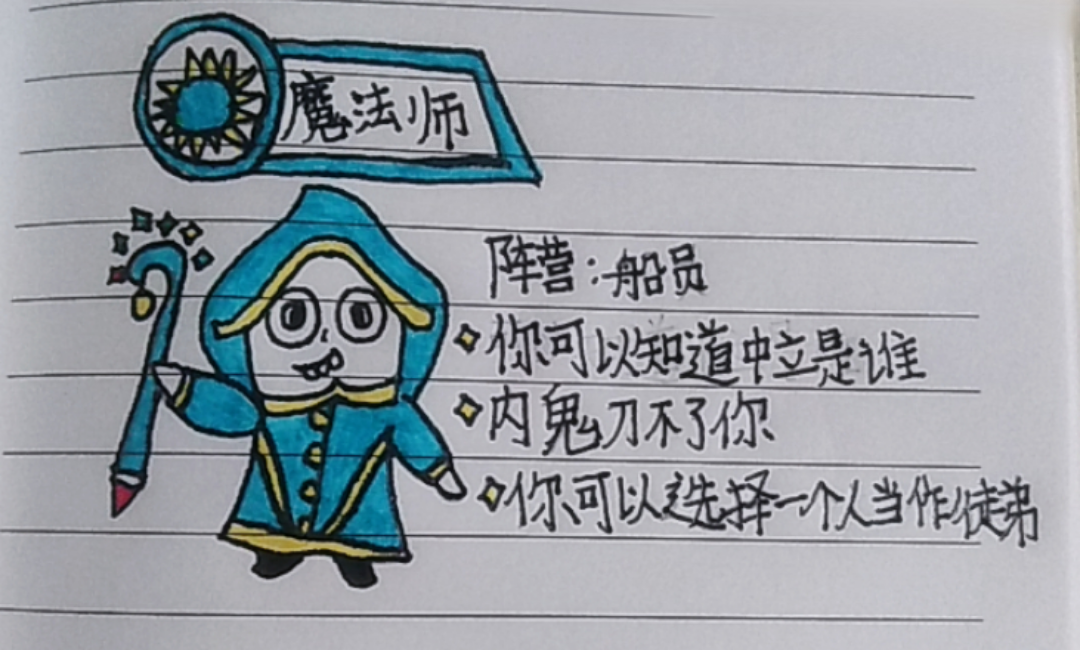 魔法师
阵营：船员
你可以知道中立是谁
内鬼刀不了你
你可以选择一个人当作徒弟